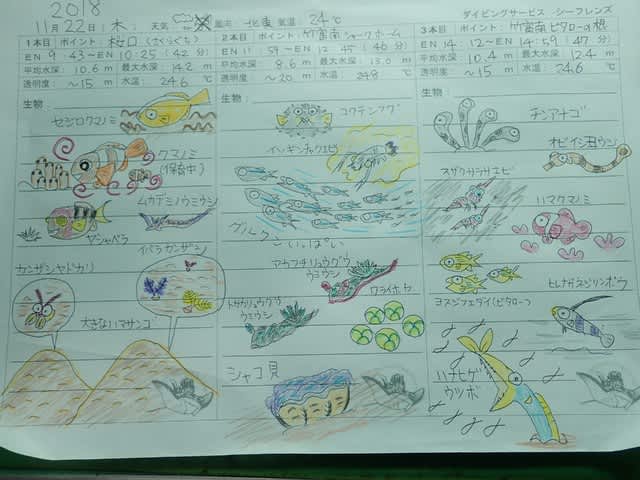 2018
11月22日 木 天気 風向 北東 気温 24℃
ダイビングサービス シーフレンズ
1本目 ポイント: 桜口(さくらぐち)
EN 9:43〜EN 10:25 (42分)
平均水深 10.6m 最大水深 14.2m
透明度: 〜15m 水温: 24.6℃
生物:
セジロクマノミ
クマノミ
(保育中)
ムカデミノウミウシ
ヤシャベラ
イバラカンザシ
カンザシヤドカリ
大きなハマサンゴ
2本目 ポイント: 竹富南シャークホーム
EN 11:59〜EN 12:45 (46分)
平均水深 8.6m 最大水深 13.0m
透明度: 〜20m 水温: 24.8℃
生物:
コクテンフグ
イソギンチャクエビ
グルクン
いっぱい
アカフチリュウグウ
ウミウシ
トサカリュウグウ
ウミウシ
シャコ貝
3本目 ポイント: 竹富南ビタローの根
EN 14:12〜EN 14:59 (47分)
平均水深 10.4m 最大水深 12.4m
透明度: 〜15m 水温: 24.6℃
生物:
チンアナゴ
オビイシヨウジ
スザクサラサエビ
ハマクマノミ
ヨスジフエダイ(ビタロー)
ヒレナガネジリンボウ
ハナヒゲ
ウツボ